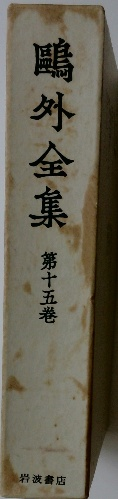 鷗外全集
第十五巻
岩波書店